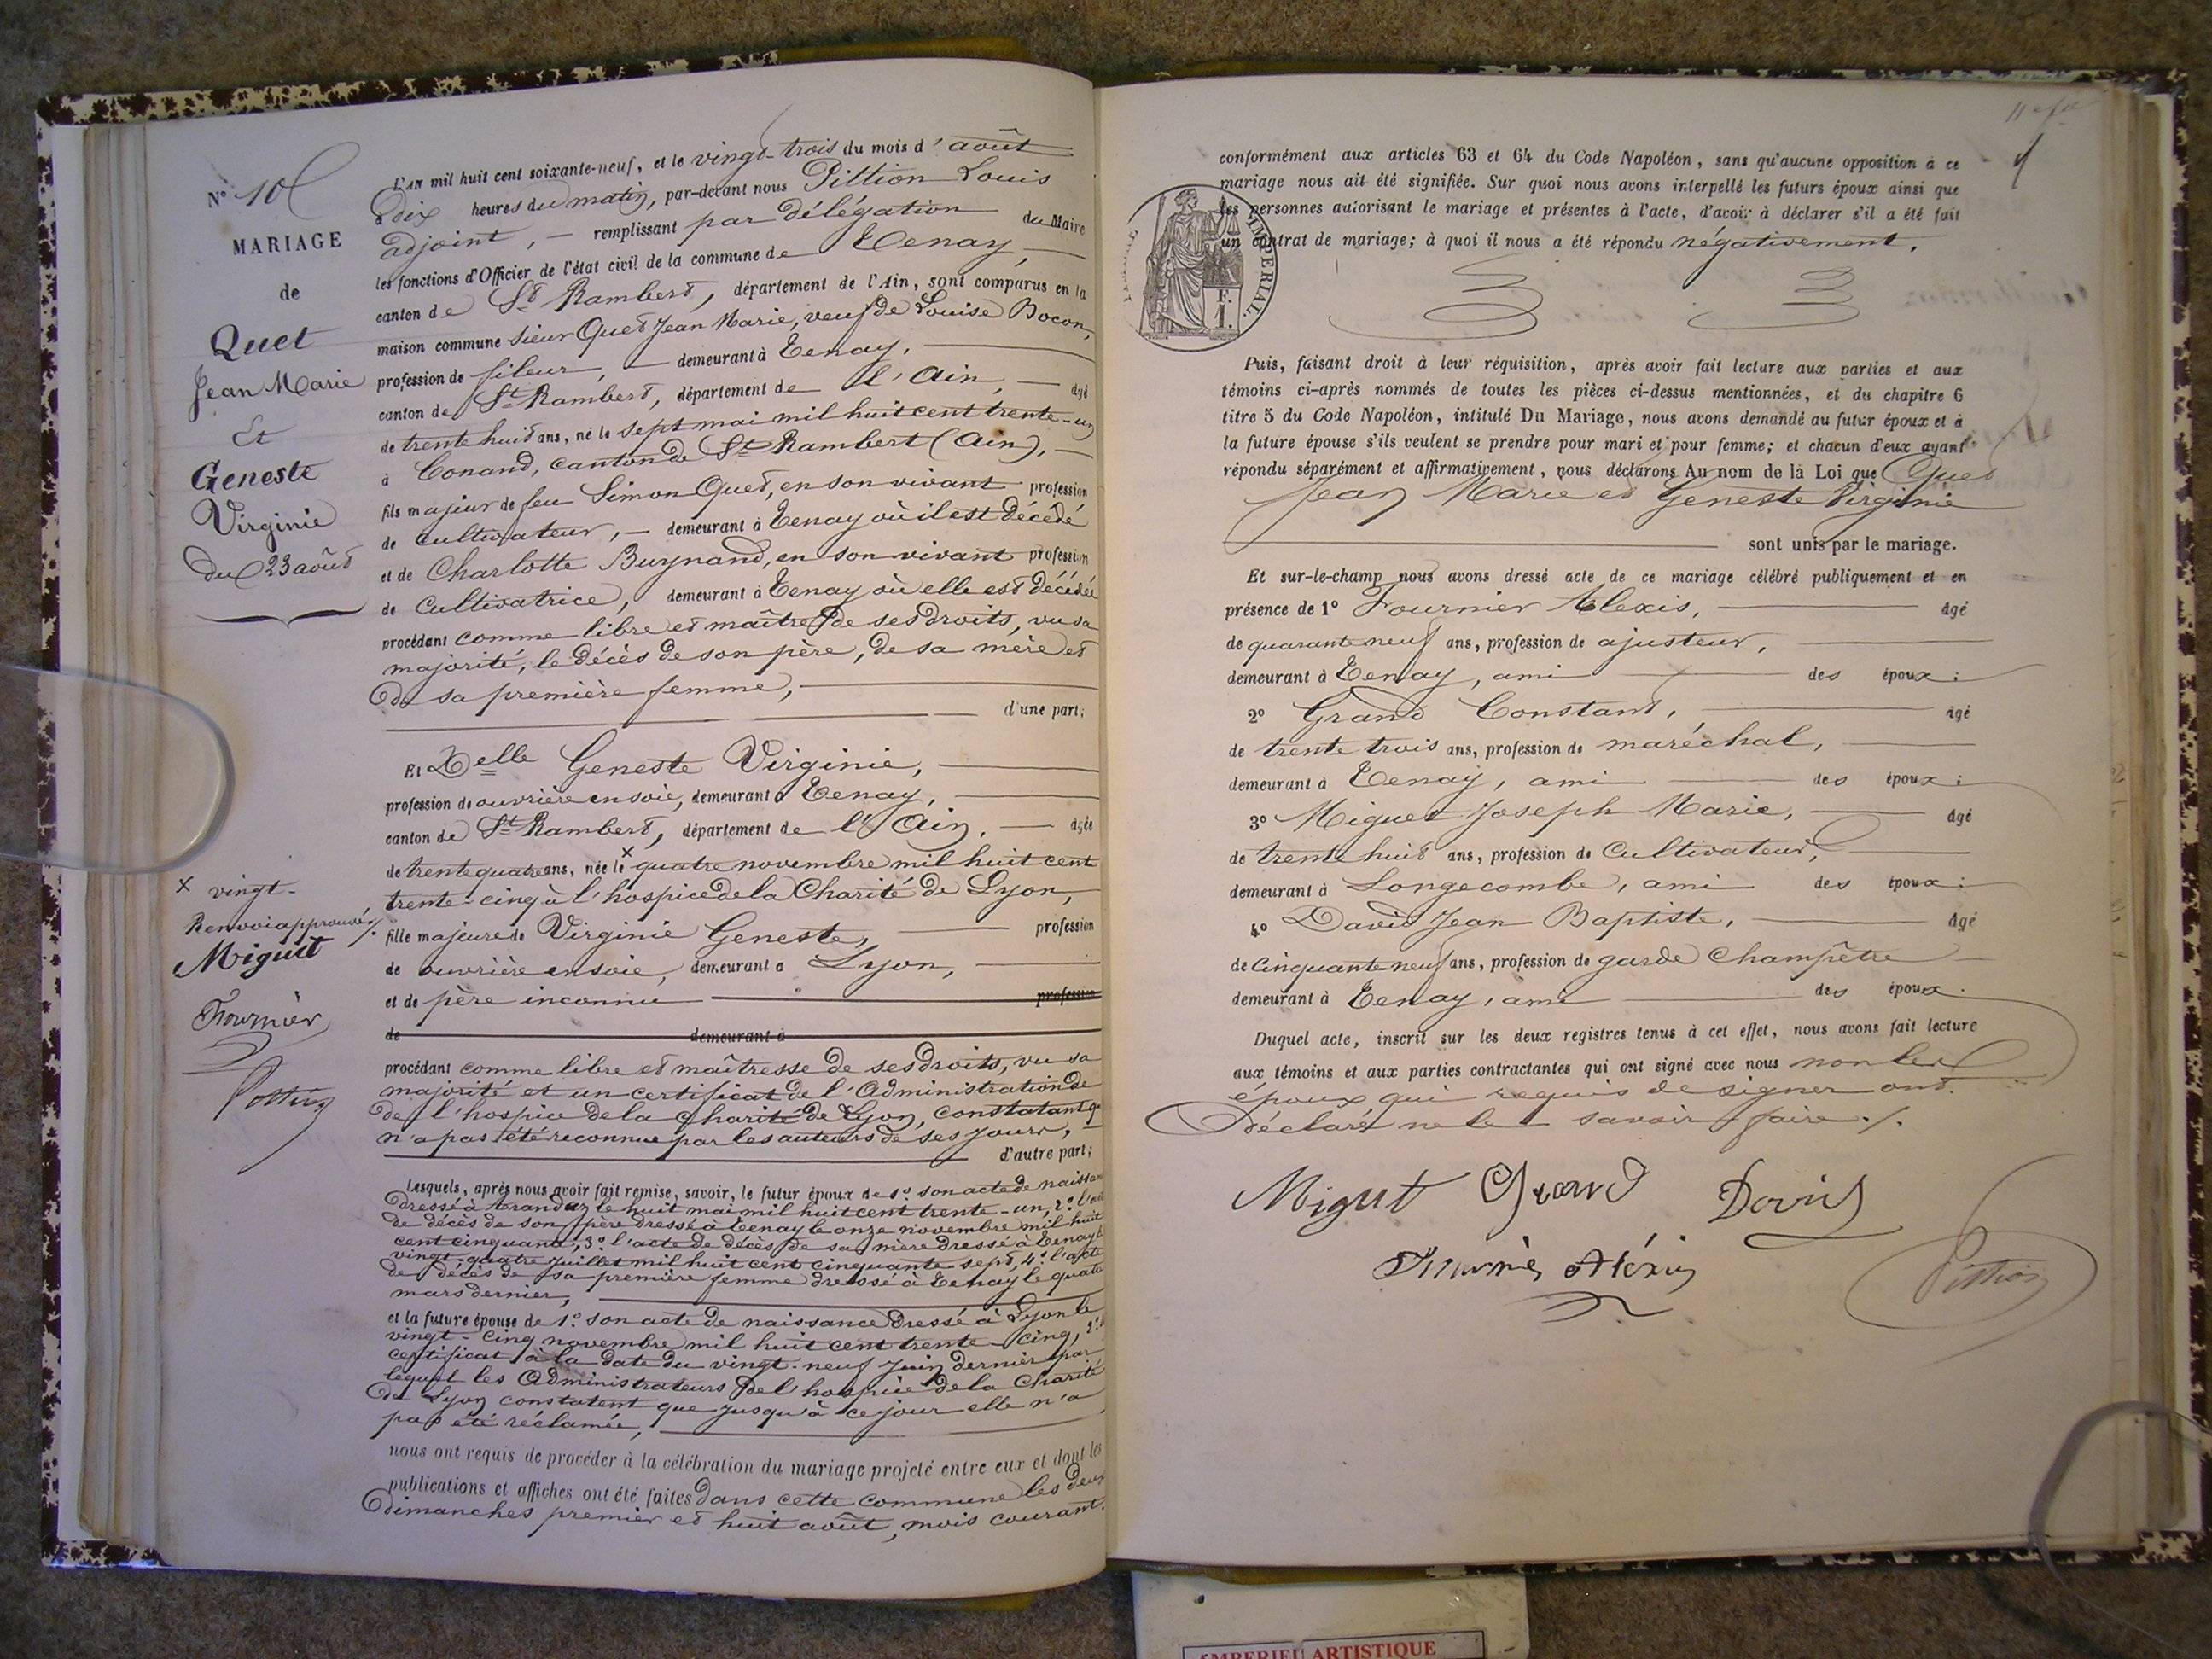 N° 10
MARIAGE
de
Quet
Jean Marie
Et
Geneste
Virginie
du 23 août
L'an mil huit cent soixante-neuf, et le vingt-trois du mois d'août
dix heures du matin, par-devant nous Pittion Louis
adjoint, — remplissant par délégation du Maire
les fonctions d'Officier de l'état civil de la commune de Tenay,
canton de St Rambert, département de l'Ain, sont comparus en la
maison commune sieur Quet Jean Marie, veuf de Louise Bocon,
profession de fileur, — demeurant à Tenay,
canton de St Rambert, département de l'Ain, — âgé
de trente huit ans, né le sept mai mil huit cent trente-un
à Conand, canton de St Rambert (Ain),
fils majeur de feu Simon Quet, en son vivant profession
de cultivateur, — demeurant à Tenay où il est décédé
et de Charlotte Buynand, en son vivant profession
de cultivatrice, demeurant à Tenay où elle est décédée
procédant comme libre et maître de ses droits, vu sa
majorité, le décès de son père, de sa mère et
de sa première femme,
d'une part;
Et Delle Geneste Virginie,
profession de ouvrière en soie, demeurant à Tenay,
canton de St Rambert, département de l'Ain, — âgée
de trente quatre ans, née le x quatre novembre mil huit cent
trente-cinq à l'hospice de la Charité de Lyon,
fille majeure de Virginie Geneste, profession
de ouvrière en soie, demeurant à Lyon,
et de père inconnu profession
de demeurant à
procédant comme libre et maîtresse de ses droits, vu sa
majorité et un certificat de l'Administration de
de l'hospice de la Charité de Lyon, constatant qu
n'a pas été reconnue par les auteurs de ses jours,
d'autre part;
x vingt-
Renvoi approuvé
Miguet
Fournier
Pittion
Lesquels, après nous avoir fait remise, savoir, le futur époux de 1° son acte de naissance
dressé à Arandas le huit mai mil huit cent trente-un, 2° l'acte
de décès de son père dressé à Tenay le onze novembre mil huit
cent cinquante, 3° l'acte de décès de sa mère dressé à Tenay le
vingt-quatre juillet mil huit cent cinquante-sept, 4° l'acte
de décès de sa première femme dressé à Tenay le quatre
mars dernier,
et la future épouse de 1° son acte de naissance dressé à Lyon le
vingt-cinq novembre mil huit cent trente-cinq, 2° le
certificat à la date du vingt-neuf juin dernier par
lequel les Administrateurs de l'hospice de la Charité
de Lyon constatent que jusqu'à ce jour elle n'a
pas été réclamée,
nous ont requis de procéder à la célébration du mariage projeté entre eux et dont les
publications et affiches ont été faites dans cette commune les deux
dimanches premier et huit août, mois courant.
conformément aux articles 63 et 64 du Code Napoléon, sans qu'aucune opposition à ce
mariage nous ait été signifiée. Sur quoi nous avons interpellé les futurs époux ainsi que
les personnes autorisant le mariage et présentes à l'acte, d'avoir à déclarer s'il a été fait
un contrat de mariage; à quoi il nous a été répondu négativement.
IMPERIAL.
F.
1.
Puis, faisant droit à leur réquisition, après avoir fait lecture aux parties et aux
témoins ci-après nommés de toutes les pièces ci-dessus mentionnées, et du chapitre 6
titre 5 du Code Napoléon, intitulé Du Mariage, nous avons demandé au futur époux et à
la future épouse s'ils veulent se prendre pour mari et pour femme; et chacun d'eux ayant
répondu séparément et affirmativement, nous déclarons Au nom de la Loi que Quet
Jean Marie et Geneste Virginie
sont unis par le mariage.
Et sur-le-champ nous avons dressé acte de ce mariage célébré publiquement et en
présence de 1° Fournier Alexis, âgé
de quarante neuf ans, profession de ajusteur,
demeurant à Tenay, ami des époux;
2° Grand Constant, âgé
de trente trois ans, profession de maréchal,
demeurant à Tenay, ami des époux;
3° Miguet Joseph Marie, âgé
de trente huit ans, profession de cultivateur,
demeurant à Longecombe, ami des époux;
4° David Jean Baptiste, âgé
de cinquante-neuf ans, profession de garde champêtre
demeurant à Tenay, ami des époux.
Duquel acte, inscrit sur les deux registres tenus à cet effet, nous avons fait lecture
aux témoins et aux parties contractantes qui ont signé avec nous non les
époux qui requis de signer ont
déclaré ne le savoir faire.
Migut Grand David
Fournier Aléxis Pittion
ARTISTIQUE